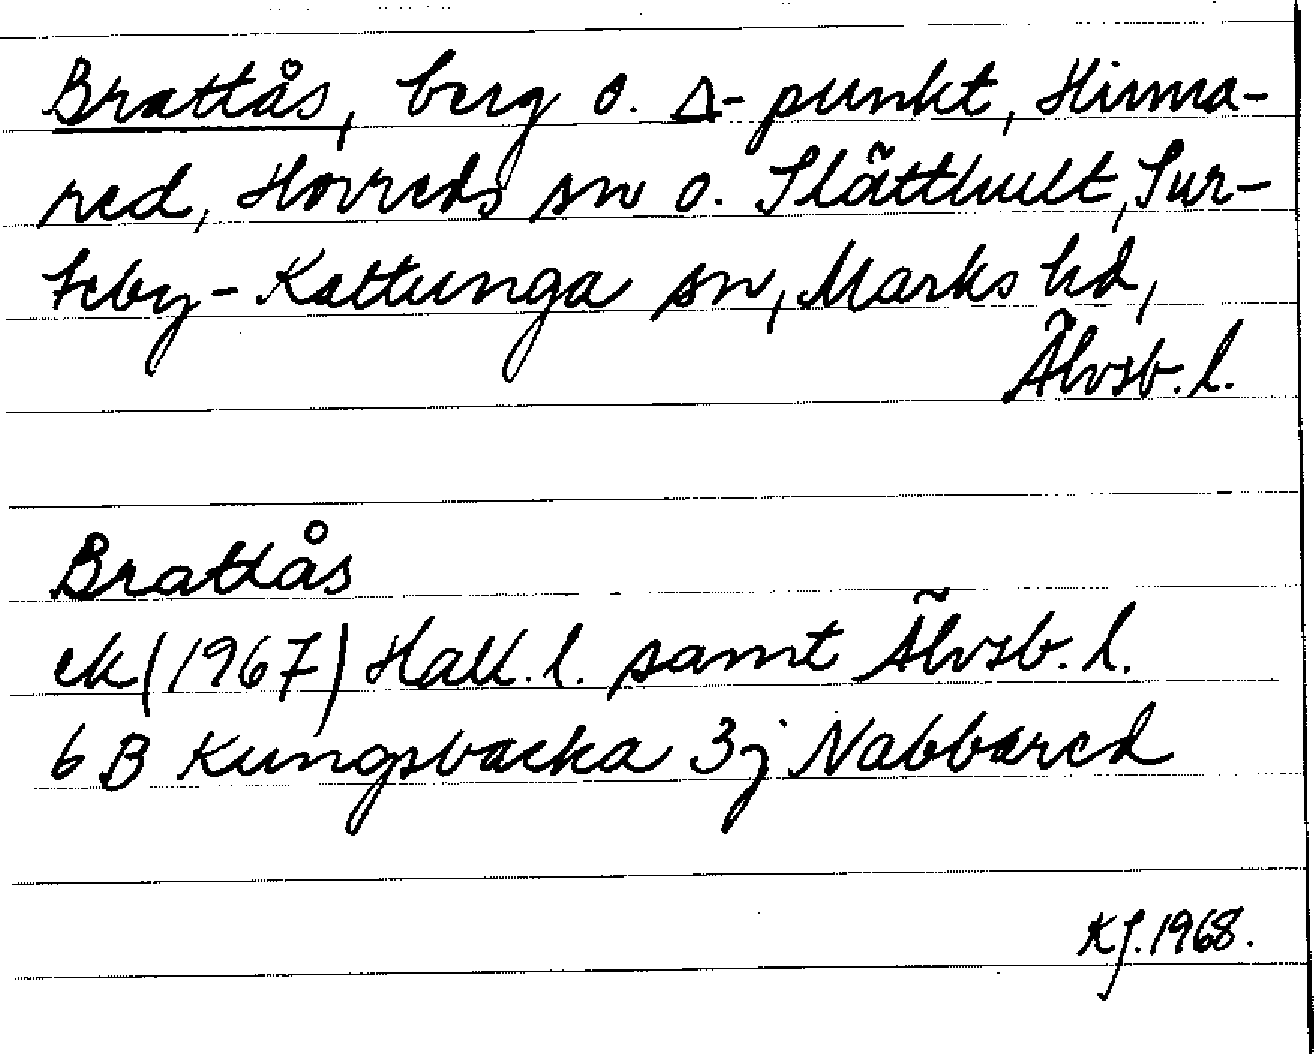 Brattås, berg o. Δ-punkt, Hinna-
red, Horreds sn o. Slätthult, Sur-
teby-Kattunga sn, Marks hd,
Älvsb. l.
Brattås
ek (1967) Hall. l. samt Älvsb. l.
6 B Kungsbacka 3j Nabbared
KJ. 1968.